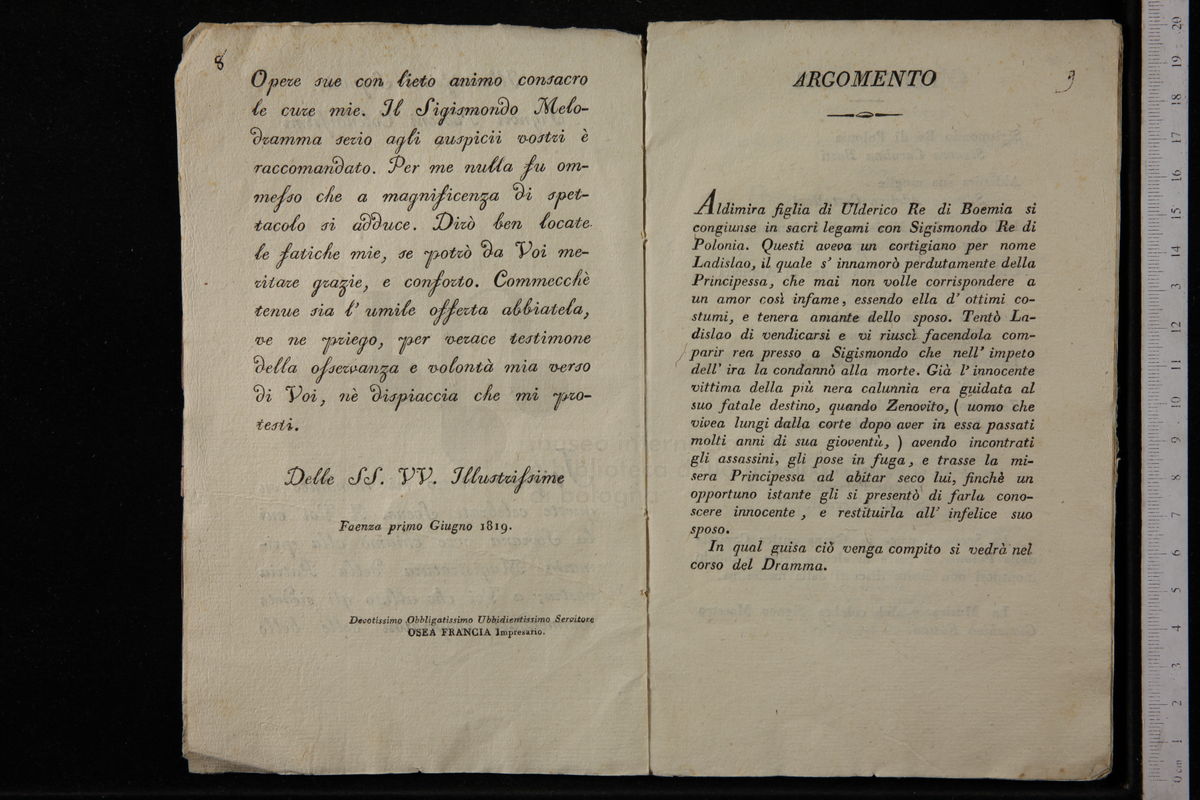 8
Opere sue con lieto animo consacro
le cure mie. Il Sigismondo Melo-
dramma serio agli auspicii vostri è
raccomandato. Per me nulla fu om-
messo che a magnificenza di spet-
tacolo si adduce. Dirò ben locate
le fatiche mie, se potrò da Voi me-
ritare grazie, e conforto. Commecchè
tenue sia l' umile offerta abbiatela,
ve ne priego, per verace testimone
della osservanza e volontà mia verso
di Voi, nè dispiaccia che mi pro-
testi.
Delle SS. VV. Illustrissime
Faenza primo Giugno 1819.
Devotissimo Obbligatissimo Ubbidientissimo Servitore
OSEA FRANCIA Impresario.
9
ARGOMENTO
Aldimira figlia di Ulderico Re di Boemia si
congiunse in sacri legami con Sigismondo Re di
Polonia. Questi aveva un cortigiano per nome
Ladislao, il quale s' innamorò perdutamente della
Principessa, che mai non volle corrispondere a
un amor così infame, essendo ella d' ottimi co-
stumi, e tenera amante dello sposo. Tentò La-
dislao di vendicarsi e vi riuscì facendola com-
parir rea presso a Sigismondo che nell' impeto
dell' ira la condannò alla morte. Già l' innocente
vittima della più nera calunnia era guidata al
suo fatale destino, quando Zenovito, ( uomo che
vivea lungi dalla corte dopo aver in essa passati
molti anni di sua gioventù, ) avendo incontrati
gli assassini, gli pose in fuga, e trasse la mi-
sera Principessa ad abitar seco lui, finchè un
opportuno istante gli si presentò di farla cono-
scere innocente , e restituirla all' infelice suo
sposo.
In qual guisa ciò venga compito si vedrà nel
corso del Dramma.